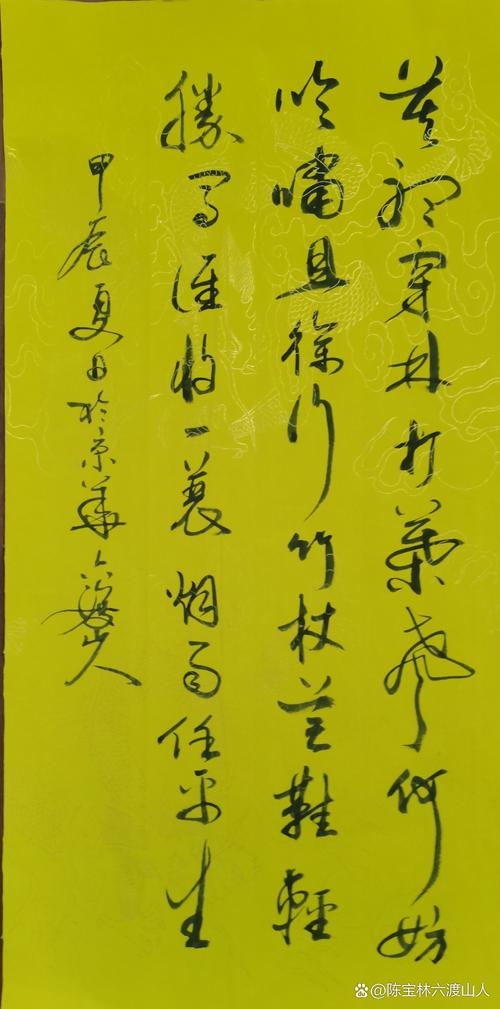 莫聽穿林打葉聲何妨
吟嘯且徐行竹杖芒鞋輕
勝馬誰怕一蓑烟雨任平生
甲辰夏日於京華六渡山人
@陈宝林六渡山人